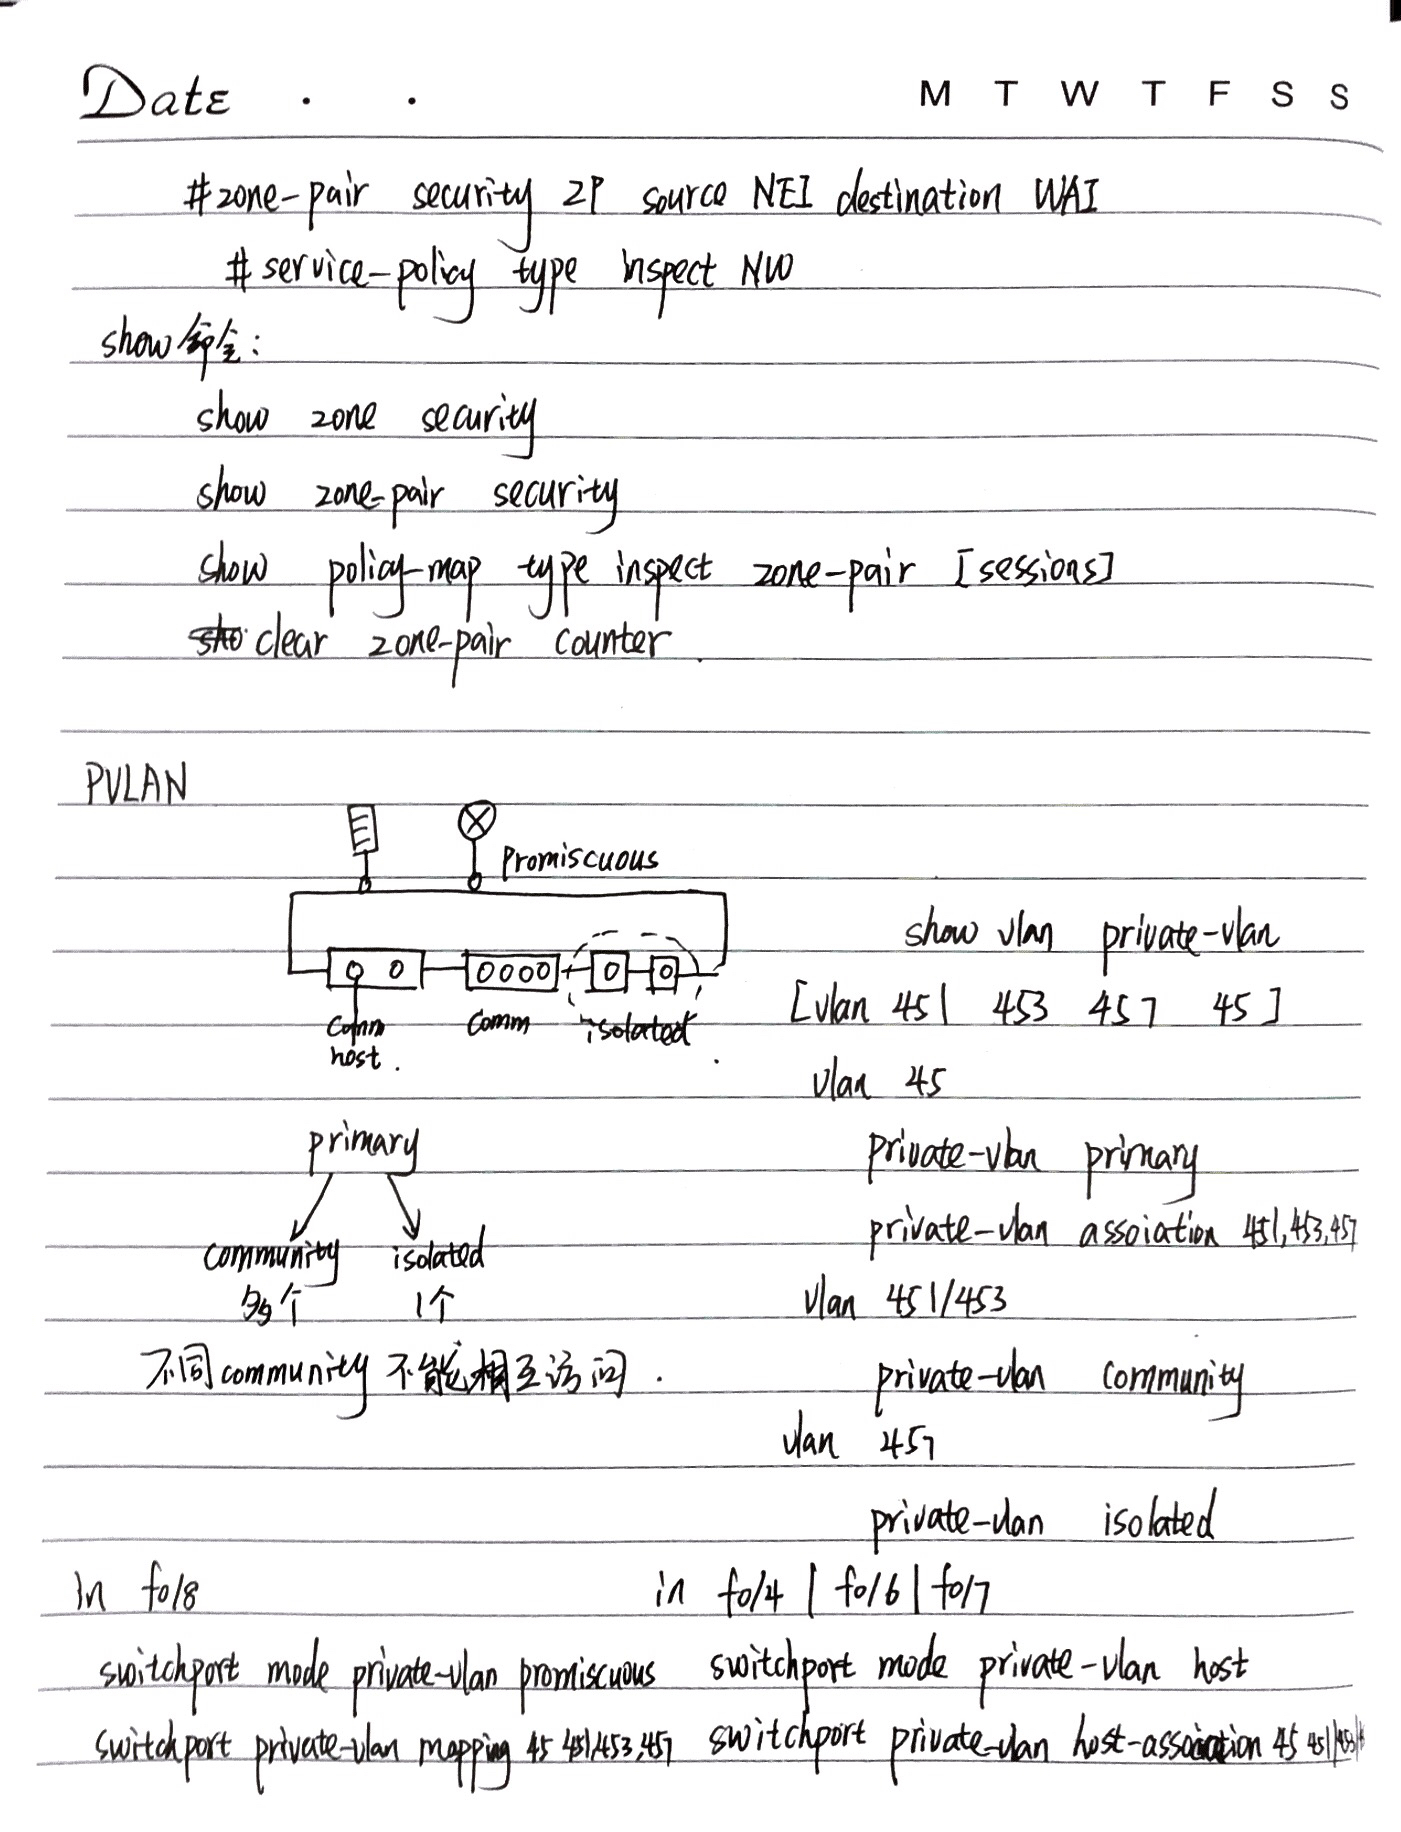 Date . . M T W T F S S
#zone-pair security ZP source NEI destination WAI
#service-policy type inspect NW
show命令:
show zone security
show zone-pair security
show policy-map type inspect zone-pair [sessions]
clear zone-pair counter
PVLAN
Promiscuous
comm
host.
comm
isolated
primary
community isolated
多个 1个
不同community不能相互访问.
show vlan private-vlan
[vlan 451 453 457 45]
vlan 45
private-vlan primary
private-vlan assoiation 451,453,457
vlan 451/453
private-vlan community
vlan 457
private-vlan isolated
In f0/8
switchport mode private-vlan promiscuous
switchport private-vlan mapping 45 451,453,457
in f0/4 | f0/6 | f0/7
switchport mode private-vlan host
switchport private-vlan host-association 45 451